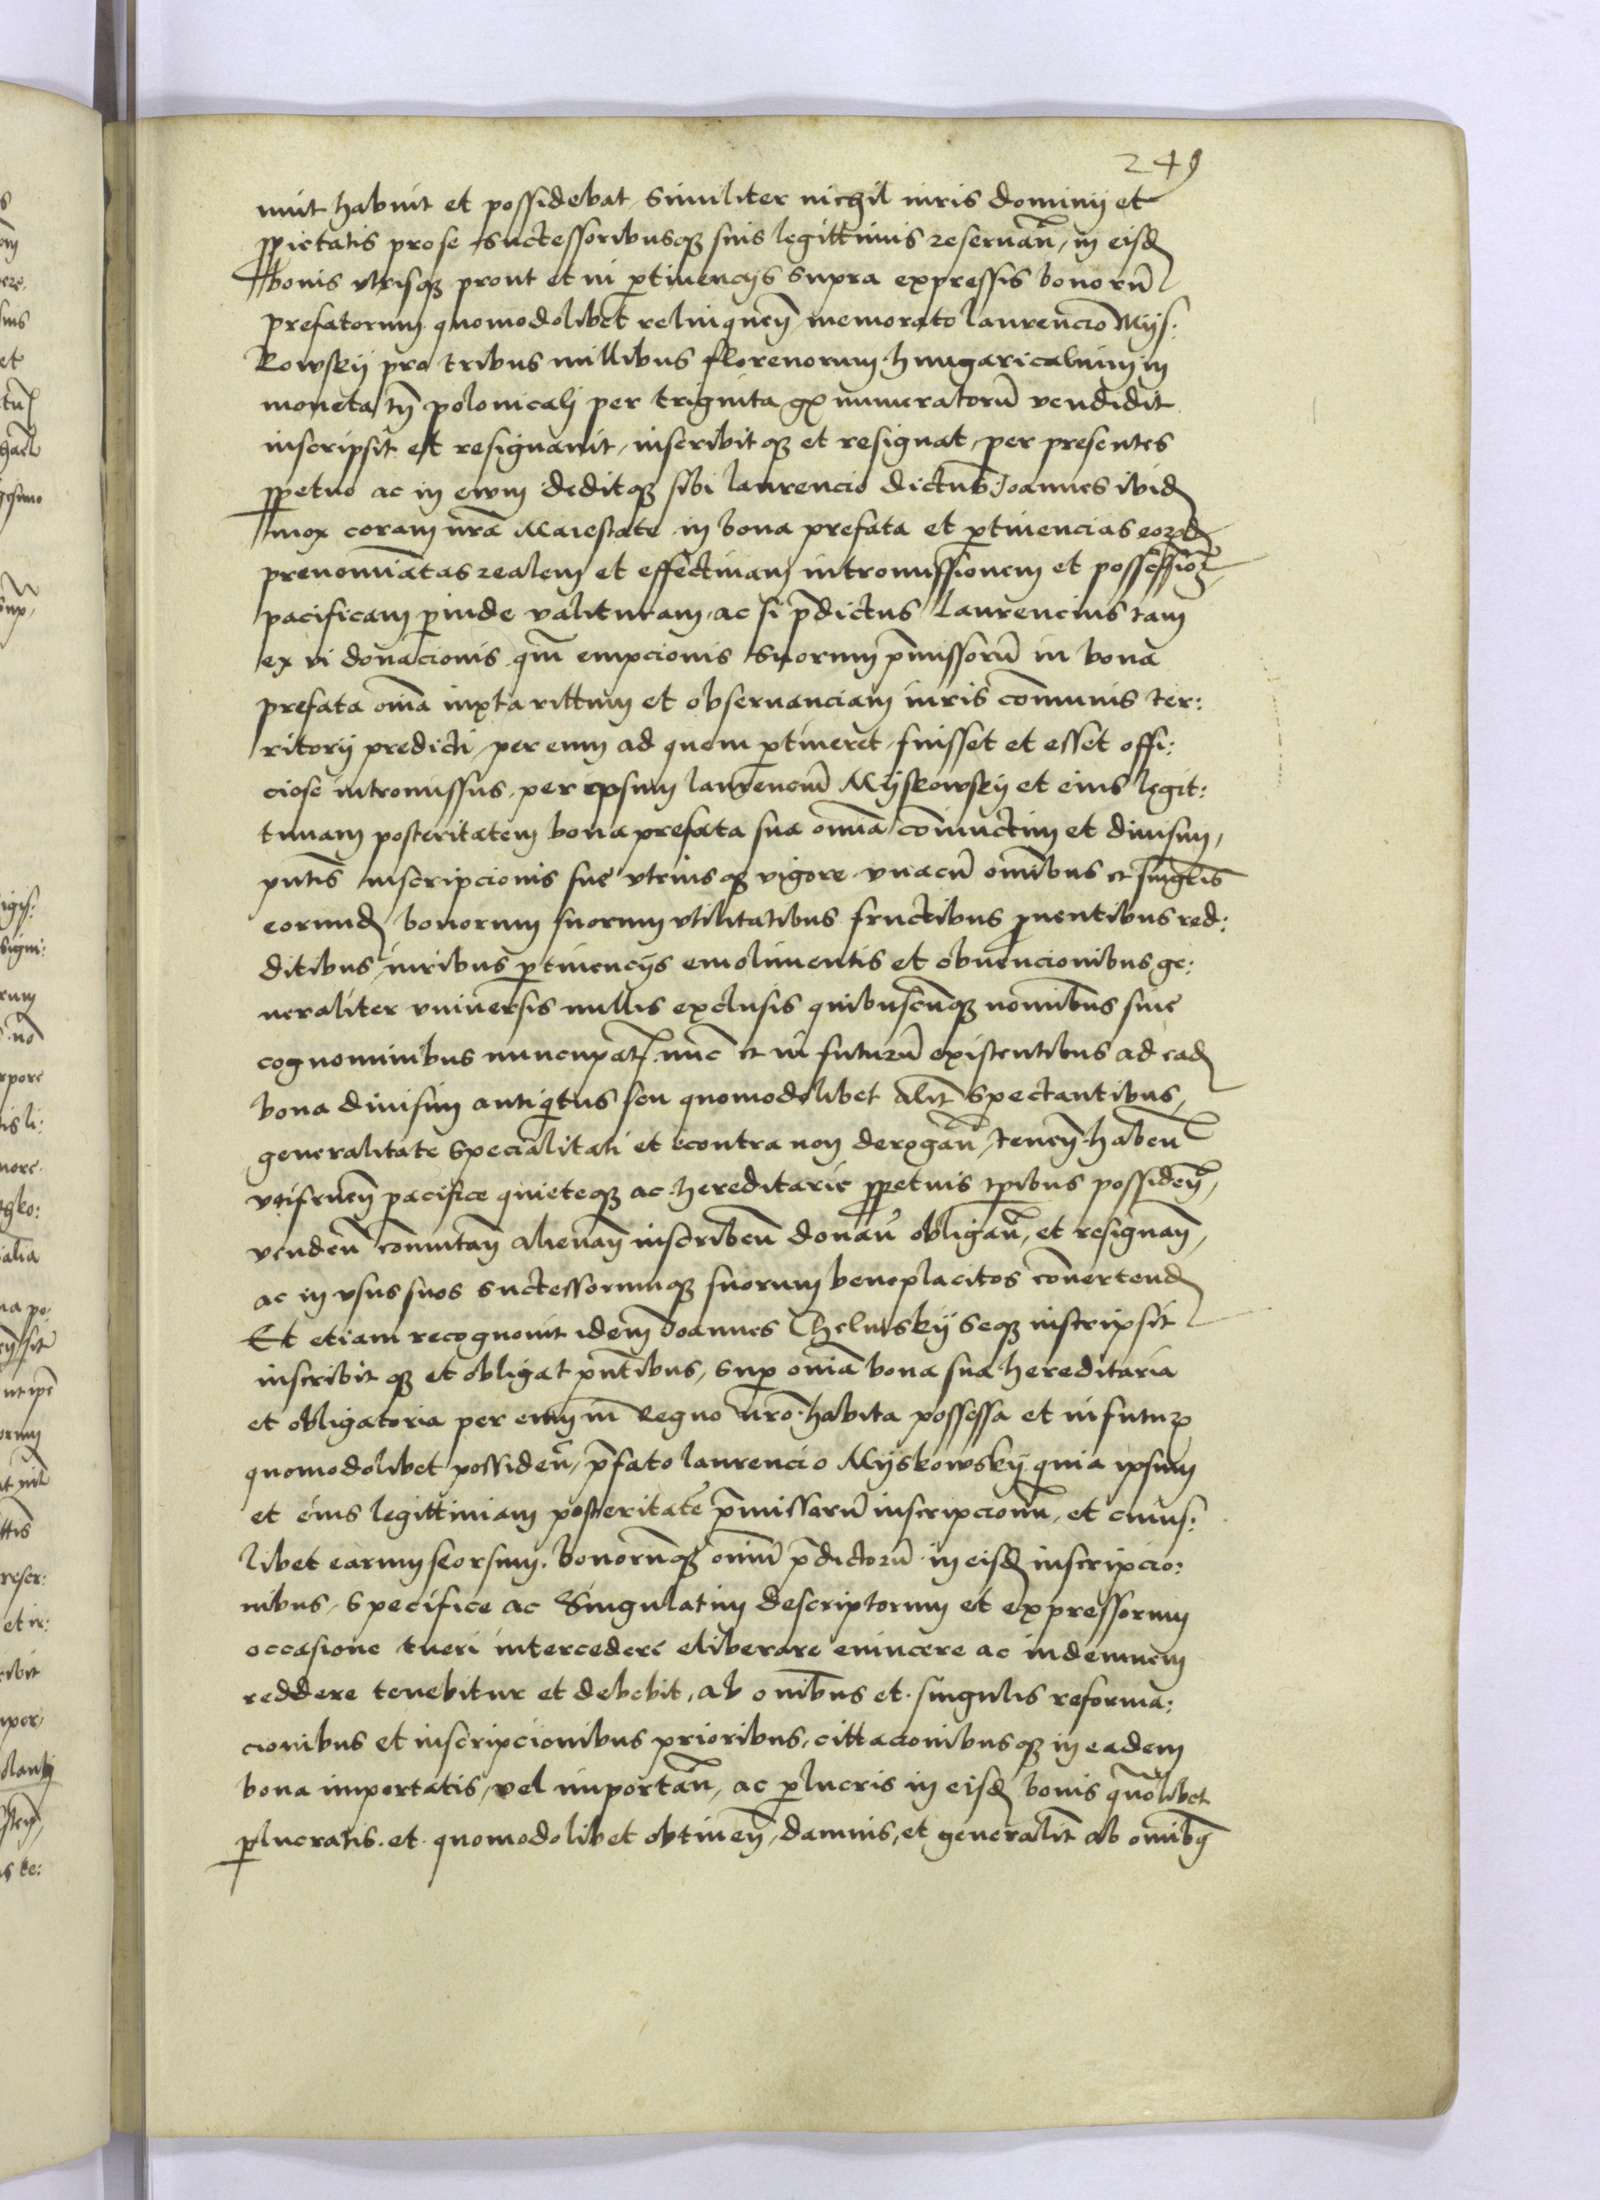 249
nuit habuit et possidebat similiter nichil iuris dominij et
ꝓprietatis pro se successoribusqꝫ suis legittimis reseruan̄, in eisd
bonis vtrisqꝫ prout et in ꝑtinencijs supra expressis bonorū
prefatorum quomodolibet relinquen̄ memorato laurencio Mijs:
kowskij pro tribus millibus florenorum hungaricalium in
moneta tn̄ polonicali per triginta gͬ numeratorū vendidit
inscripsit et resignauit, inscribitqꝫ et resignat, per presentes
ꝑpetuo ac in ewm deditqꝫ sibi laurencio dictus Joannes ibid
mox coram nr̄a Maiestate in bona prefata et ꝑtinencias eorūd
prenominatas realem et effectiuam intromissionem et possession̄
pacificam ꝑinde valituram ac si p̄dictus Laurencius tam
ex vi donacionis qm̄ empcionis suorum p̄missorū in bona
prefata om̄ia iuxta rittum et obseruanciam iuris com̄unis ter:
ritorij predicti per eum ad quem ꝑtineret fuisset et esset offi:
ciose intromissus, per ipsum laurenciū Mijskowskij et eius legit:
timam posteritatem bona prefata sua omnia coniunctim et diuisim,
pn̄tis inscripcionis sue vtriusqꝫ vigore vnacū om̄ibus et singlis
eorumd bonorum suorum vtilitatibus fructibus ꝓuentibus red:
ditibus, iuribus ꝑtinencijs emolimentis et obuencionibus ge:
neraliter vniuersis nullis exclusis quibuscūqꝫ nominibus siue
cognominibus nuncupat̄ nūc et in futurū existentibus ad ead
bona diuisim antiqͥtus seu quomodolibet alit̄ spectantibus,
generalitate specialitati et econtra non derogan̄, tenen̄ haben̄
vtifruen̄ pacifice quieteqꝫ ac hereditarie ꝑpetuis tp̄ibus possiden̄,
venden̄ com̄utan̄ alienan̄ inscriben̄ donan̄ obligan̄, et resignan̄,
ac in vsus suos successorumqꝫ suorum beneplacitos conuertend
Et etiam recognouit idem Joannes Chelmskij seqꝫ inscripsit
inscribitqꝫ et obligat pn̄tibus, sup om̄ia bona sua hereditaria
et obligatoria per eum in Regno nr̄o habita possessa et in futurꝫ
quomodolibet possiden̄, p̄fato laurencio Mijskowskij quia ipsum
et eius legittimam posteritatē p̄missarū inscripcionū, et cuius:
libet earum seorsum, bonorūqꝫ om̄iū p̄dictorū in eisd inscripcio:
nibus, specifice ac singulatim descriptorum et expressorum
occasione tueri intercedere eliberare euincere ac indemnem
reddere tenebitur et debebit, ab om̄ibus et singulis reforma:
cionibus et inscripcionibus prioribus, cittacionibusqꝫ in eadem
bona importatis, vel importan̄, ac ꝑlucris in eisd bonis quōlibet
ꝑlucratis et quomodolibet obtinen̄, damnis, et generalit̄ ab om̄ibꝫ